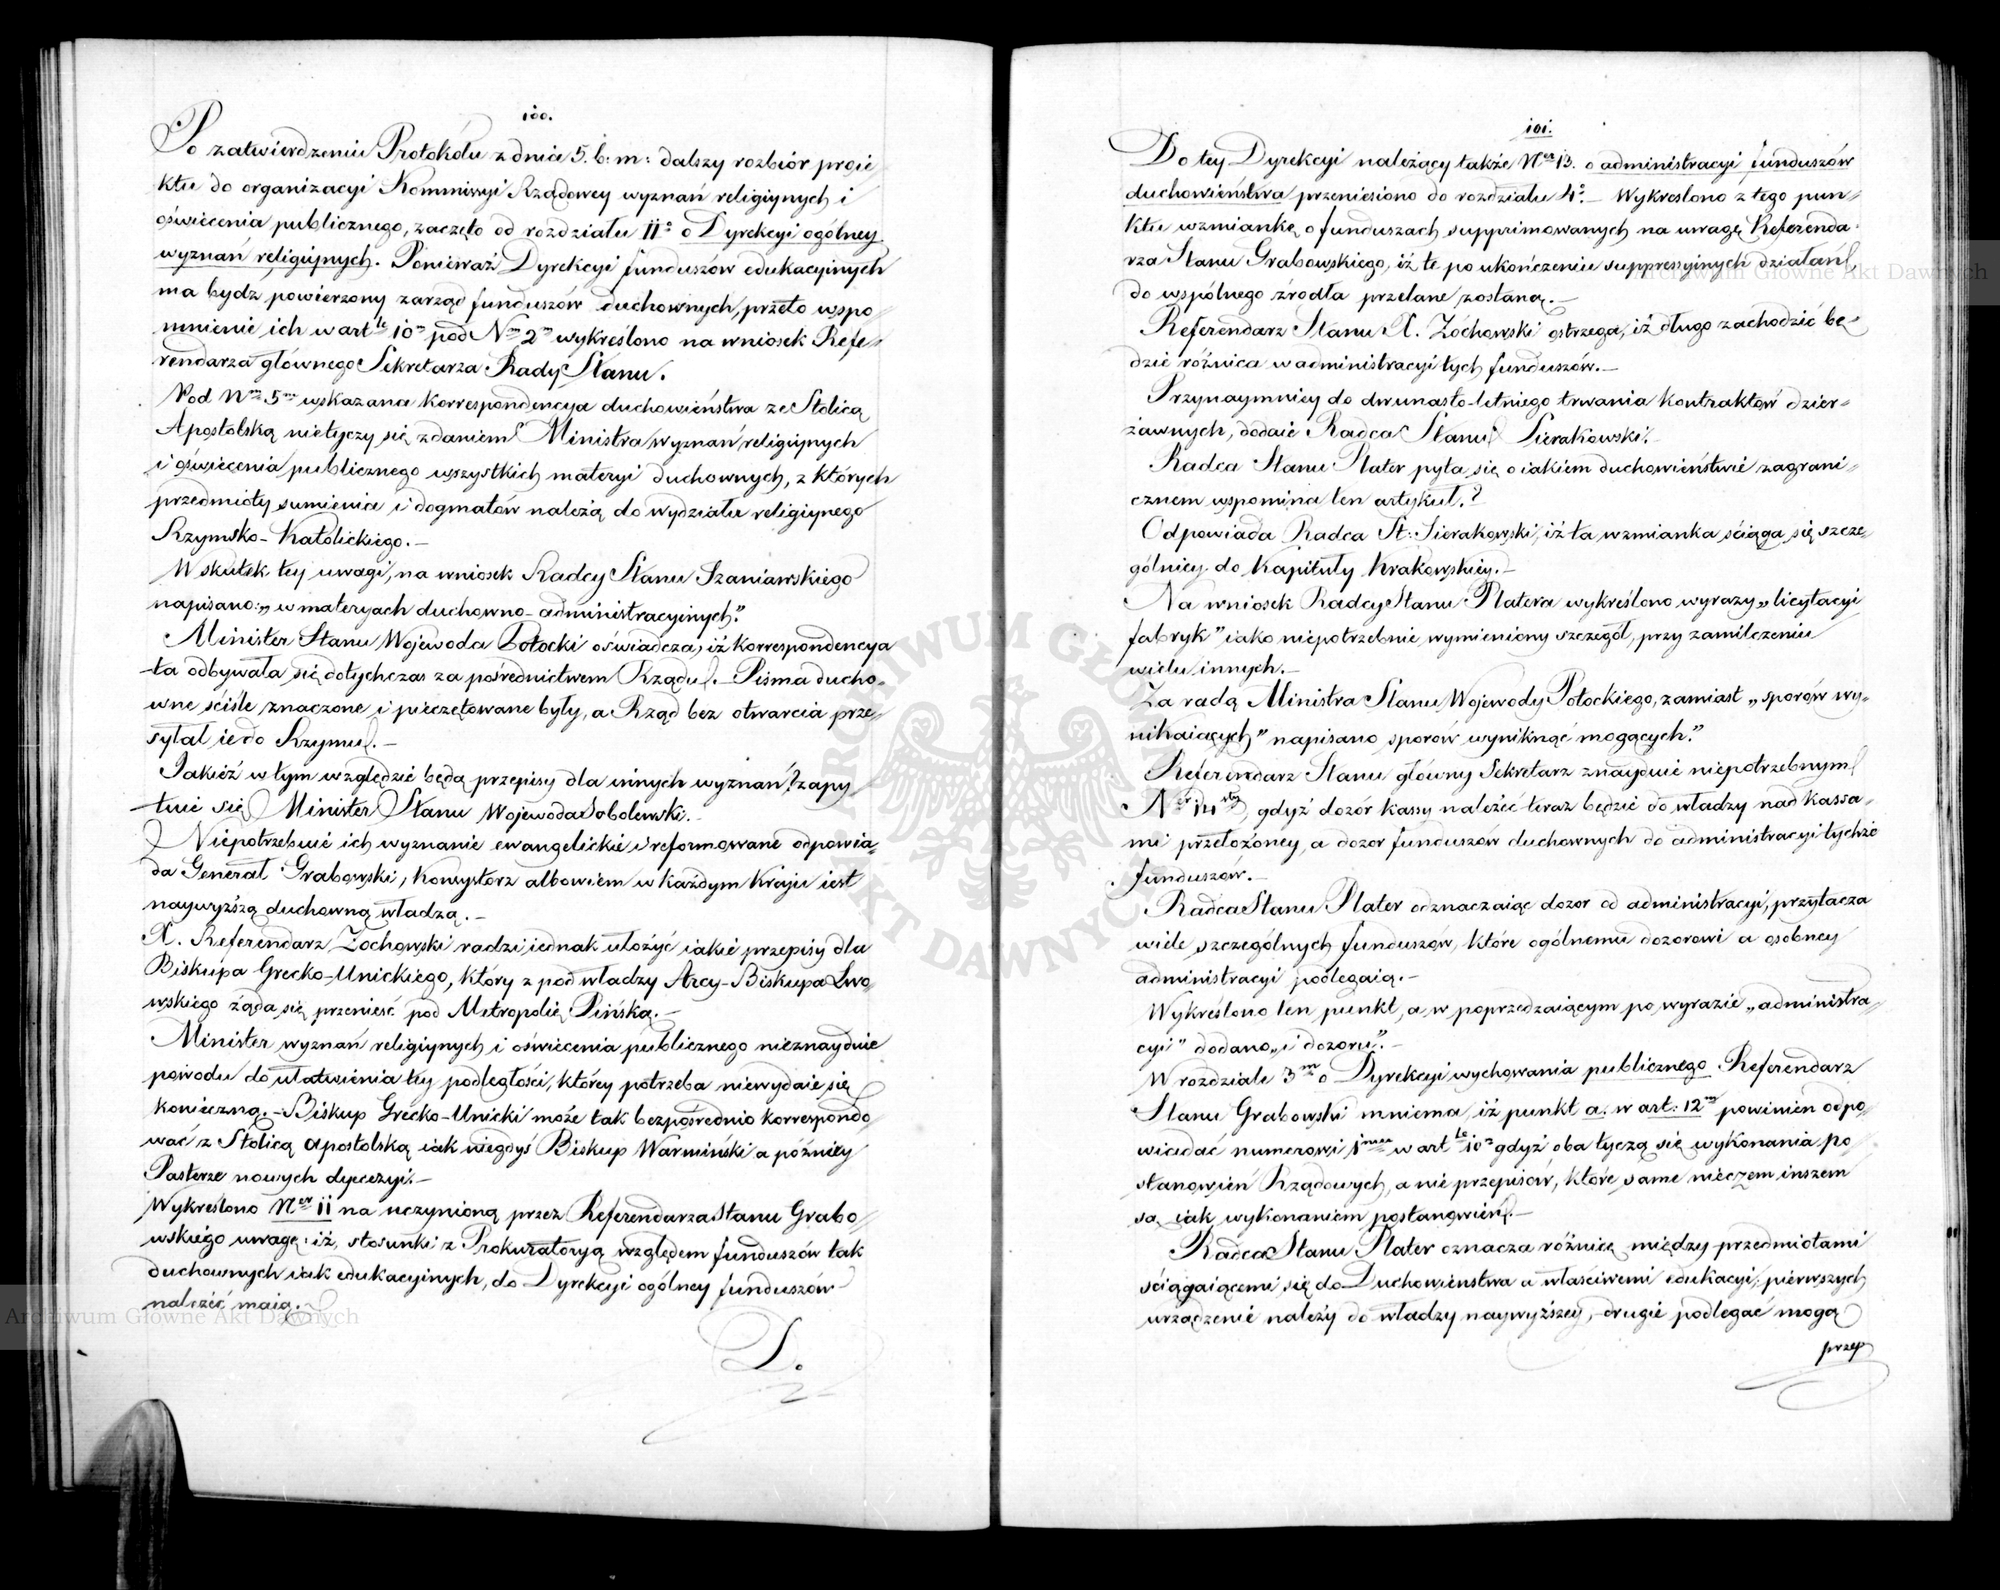 100.
Po zatwierdzeniu Protokółu z dnia 5. b: m: dalszy rozbiór proie
ktu do organizacyi Kommissyi Rządowey wyznań religiynych i
oświecenia publicznego, zaczęto od rozdziału IIo o Dyrekcyi ogólney
wyznań religiynych. Ponieważ Dyrekcyi funduszów edukacyinych
ma bydz powierzony zarząd funduszów duchownych, przeto wspo
mnienie ich w artle 10m pod Nrm 2m wykreślono na wniosek Refe-
rendarza głównego Sekretarza Rady Stanu.
Pod Nrm 5m wskazana korrespondencya duchowieństwa ze Stolicą
Apostolską nietyczy się zdaniem Ministra wyznań religiynych
i oświecenia publicznego wszystkich materyi duchownych, z których
przedmioty sumienia i dogmatów należą do wydziału religiynego
Rzymsko-Katolickiego.-
W skutek tey uwagi, na wniosek Radcy Stanu Szaniawskiego
napisano: „w materyach duchowno-administracyinych."
Minister Stanu Wojewoda Potocki oświadcza, iż korrespondencya
ta odbywała się dotychczas za pośrednictwem Rządu.- Pisma ducho-
wne ściśle znaczone i pieczętowane były, a Rząd bez otwarcia prze-
syłał ie do Rzymu.-
Jakież w tym względzie będą przepisy dla innych wyznań? zapy
tuie się Minister Stanu Wojewoda Sobolewski.-
Niepotrzebuie ich wyznanie ewangelickie i reformowane odpowia-
da Generał Grabowski, konsystorz albowiem w każdym kraiu iest
naywyższą duchowną władzą.-
X. Referendarz Zochowski radzi iednak ułożyć iakie przepisy dla
Biskupa Grecko-Unickiego, który z pod władzy Arcy-Biskupa Lwo-
wskiego żąda się przenieść pod Metropolię Pińską.-
Minister wyznań religiynych i oświecenia publicznego nieznayduie
powodu do ułatwienia tey podległości, którey potrzeba niewydaie się
konieczną.- Biskup Grecko-Unicki może tak bezpośrednio korrespondo
wać z Stolicą apostolską iak niegdyś Biskup Warmiński a późniey
Pasterze nowych dyecezyi.-
Wykreślono Ner 11 na uczynioną przez Referendarza Stanu Grabo
wskiego uwagę: iż, stosunki z Prokuratoryą względem funduszów tak
duchownych iak edukacyinych, do Dyrekcyi ogólney funduszów
należeć maią.-
D.
101.
Do tey Dyrekcyi należący także Ner 13. o administracyi funduszów
duchowieństwa przeniesiono do rozdziału 4o.- Wykreślono z tego pun-
ktu wzmiankę o funduszach supprimowanych na uwagę Referenda-
rza Stanu Grabowskiego, iż te po ukończeniu suppressyinych działań,
do wspólnego źrodła przelane zostaną.-
Referendarz Stanu X. Zochowski ostrzega, iż długo zachodzić bę-
dzie różnica w administracyi tych funduszów.-
Przynaymniey do dwunasto-letniego trwania kontraktów dzier-
żawnych, dodaie Radca Stanu Sierakowski.-
Radca Stanu Plater pyta się o iakiem duchowieństwie zagrani-
cznem wspomina ten artykuł.?
Odpowiada Radca St: Sierakowski, iż ta wzmianka ściąga się szcze-
gólniey do Kapituły Krakowskiéy.-
Na wniosek Radcy Stanu Platera wykreślono wyrazy „licytacyi
fabryk" iako niepotrzebnie wymieniony szczegół, przy zamilczeniu
wielu innych.-
Za radą Ministra Stanu Wojewody Potockiego, zamiast „sporów wy-
nikaiących" napisano sporów wyniknąć mogących."
Referendarz Stanu główny Sekretarz znayduie niepotrzebnym
Ner 14ty, gdyż dozór kassy należeć teraz będzie do władzy nad kassa-
mi przełożoney, a dozor funduszów duchownych do administracyi tychże
funduszów.-
Radca Stanu Plater odznaczaiąc dozor od administracyi, przytacza
wiele szczególnych funduszów, które ogólnemu dozorowi a osobney
administracyi podlegaią.-
Wykreślono ten punkt, a w poprzedzaiącym po wyrazie „administra-
cyi" dodano „i dozoru".-
W rozdziale 3m o Dyrekcyi wychowania publicznego Referendarz
Stanu Grabowski mniema, iż punkt a. w art: 12m powinien odpo-
wiadać numerowi 1mu w artle 10m gdyż oba tyczą się wykonania po
stanowień Rządowych, a nie przepisów, które same niéczem inszem
są iak wykonaniem postanowień.-
Radca Stanu Plater oznacza różnicę między przedmiotami
ściągaiącemi się do Duchowieństwa a właściwemi edukacyi; pierwszych
urządzenie należy do władzy naywyższey, drugie podlegać mogą
przep